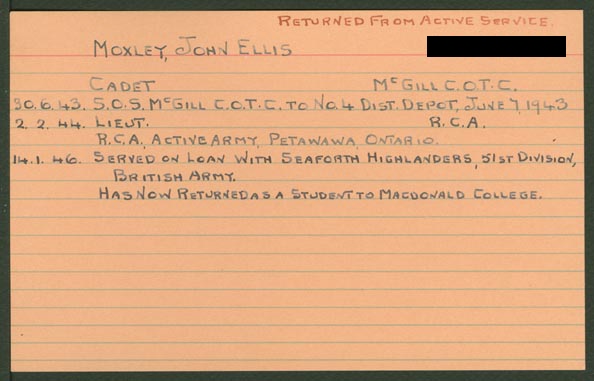 RETURNED FROM ACTIVE SERVICE.
MOXLEY, JOHN ELLIS
CADET McGILL C.O.T.C.
30.6.43. S.O.S. McGILL C.O.T.C. TO No.4 DIST. DEPOT, JUNE 7, 1943
2.2.44. LIEUT. R.C.A.
R.C.A., ACTIVE ARMY, PETAWAWA, ONTARIO.
14.1.46. SERVED ON LOAN WITH SEAFORTH HIGHLANDERS, 51ST DIVISION,
BRITISH ARMY.
HAS NOW RETURNED AS A STUDENT TO MACDONALD COLLEGE.